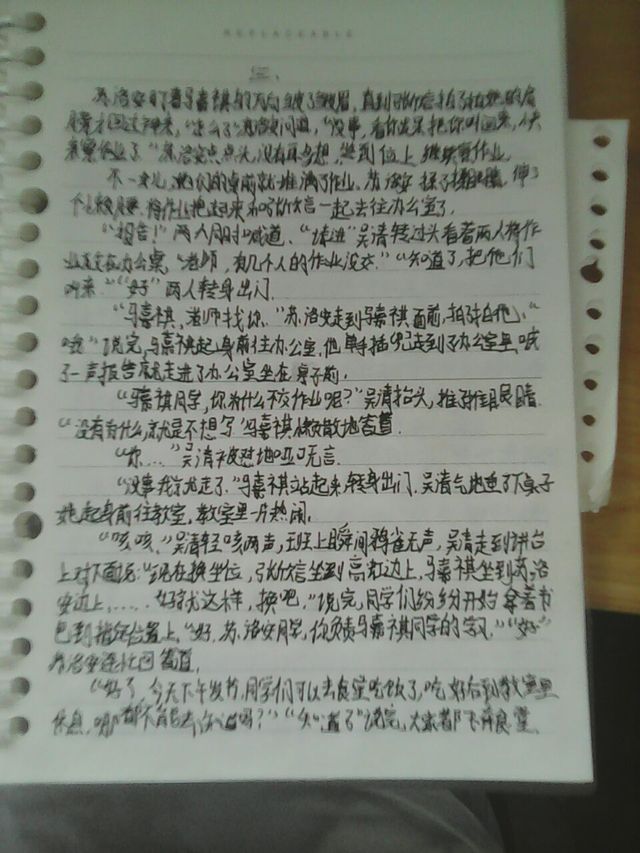 REPLACEABLE
三、
苏洛安盯着马嘉祺的方向皱了皱眉，直到张忻言拍了拍她的肩
膀才回过神来，“怎么了”苏洛安问道，“没事，看你发呆把你叫回来，快
来要作业了。”苏洛安点点头，没有再多想，坐到位上，继续写作业。
不一会儿，她们的桌前就堆满了作业。苏洛安揉了揉眼睛，伸了
个懒腰，将作业抱起来和张忻言一起去往办公室了。
“报告！”两人同时喊道、“请进”吴清转过头看着两人将作
业放在办公桌，“老师，有几个人的作业没交。”“知道了，把他们
叫来.”“好”两人转身出门.
“马嘉祺，老师找你.”苏洛安走到马嘉祺面前，拍了拍他.“
哦”说完，马嘉祺起身前往办公室.他单手插兜走到了办公室里，喊
了一声报告就走进了办公室坐在桌子前.
“马嘉祺同学，你为什么不交作业呢？”吴清抬头，推了推眼睛.
“没有为什么，就是不想写”马嘉祺懒散地答道.
“你....”吴清被怼地哑口无言.
“没事我就走了.”马嘉祺站起来，转身出门.吴清气地锤了下桌子
她起身前往教室，教室里一片热闹.
“咳咳”吴清轻咳两声，班上瞬间鸦雀无声，吴清走到讲台
上对下面说：“现在换坐位，张忻言坐到高虹边上，马嘉祺坐到苏洛
安边上，......好就这样，换吧.”说完，同学们纷纷开始拿着书
包到指定位置上，“好，苏洛安同学，你负责马嘉祺同学的学习.”“好”
苏洛安连忙回答道.
“好了，今天下午发书，同学们可以去食堂吃饭了，吃好后到教室里
休息，哪都不能去，知道吗？”“知道了”说完，大家都下楼去食堂.